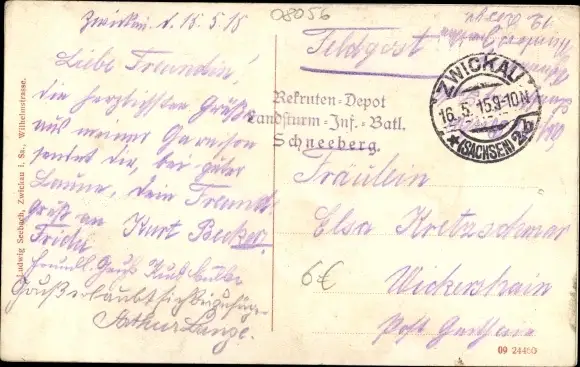 Zwickau, d. 15.5.15
08056
Liebe Freundin!
die herzlichsten Grüße
aus meiner Garnison
sendet dir, bei guter
Laune, dein Freund
Kurt Becker.
Gruß an
Frida
Freundl. Gruß
Gruß erlaubt sich beizufügen
Arthur Lange.
Feldpost
Rekruten-Depot
Landsturm-Inf.-Batl.
Schneeberg.
ZWICKAU
16.5.15.9-10N
*(SACHSEN)2b
Fräulein
Elsa Kretzschmar
Wickershain
Post Geithain
6€
Ludwig Seebach, Zwickau i. Sa., Wilhelmstrasse.
09 24460